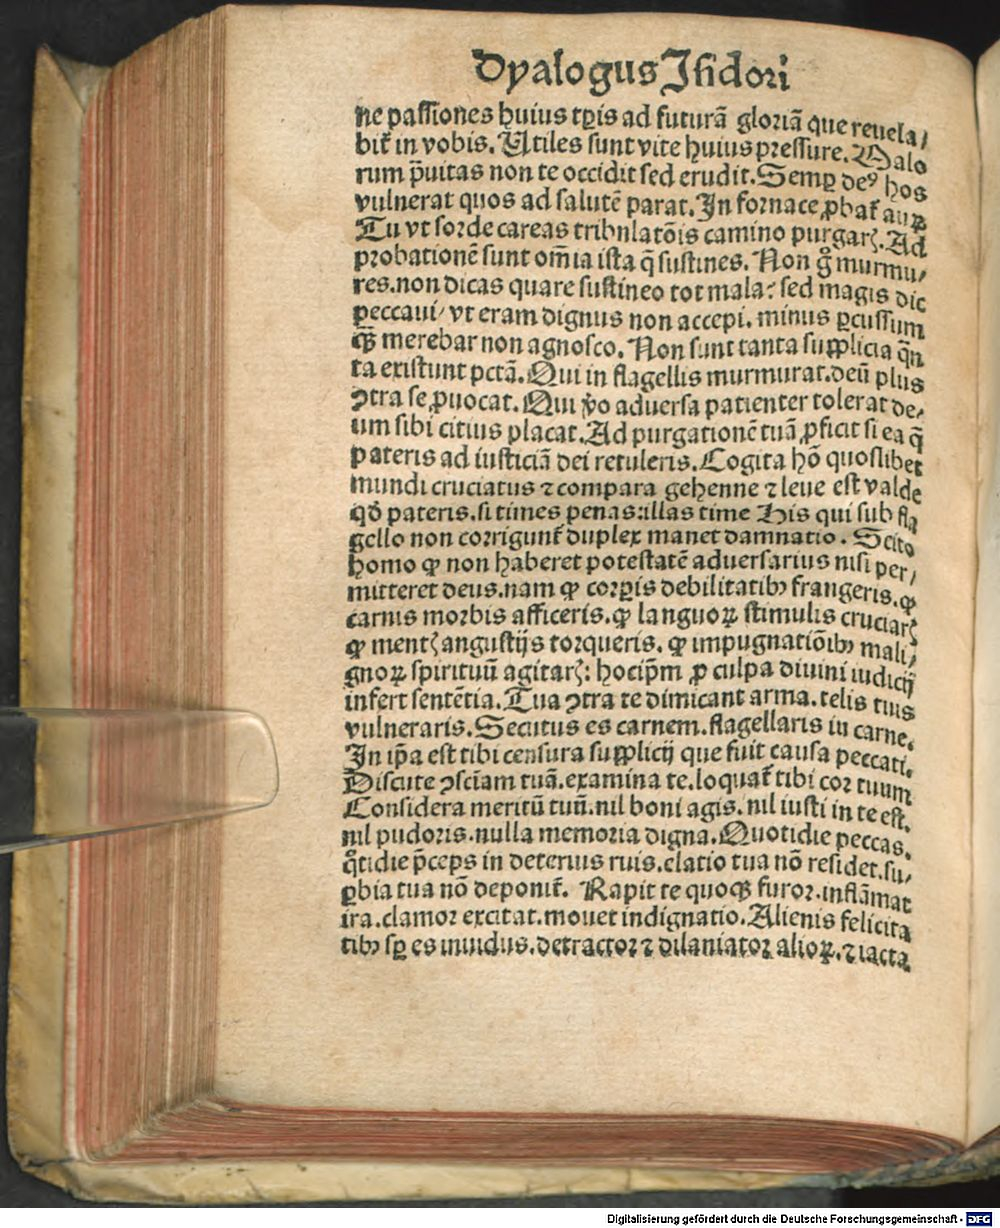 Dyalogus Isidori
ne passiones huius tꝑis ad futurā gloriā que reuela/
bit᷑ in vobis. Utiles sunt vite huius pressure. Malo
rum p̄uitas non te occidit sed erudit. Semꝑ deꝰ hos
vulnerat quos ad salutē parat. In fornace ꝓbat᷑ auꝝ
Tu vt sorde careas tribulatōis camino purgarꝭ. Ad
probationē sunt om̄ia ista q̄ sustines. Non gͦ murmu/
res. non dicas quare sustineo tot mala? sed magis dic
peccaui/ vt eram dignus non accepi. minus ꝑcussum
qꝫ merebar non agnosco. Non sunt tanta supplicia q̄n
ta existunt pctā. Qui in flagellis murmurat. deū plus
ꝯtra se ꝓuocat. Qui v̄o aduersa patienter tolerat de/
um sibi citius placat. Ad purgationē tuā ꝓficit si ea q̄
pateris ad iusticiā dei retuleris. Cogita hō quoslibet
mundi cruciatus ⁊ compara gehenne ⁊ leue est valde
qđ pateris. si times penas: illas time His qui sub fla
gello non corrigunt᷑ duplex manet damnatio. Scito
homo ꝙ non haberet potestatē aduersarius nisi per/
mitteret deus. nam ꝙ corꝑis debilitatibꝫ frangeris. ꝙ
carnis morbis afficeris. ꝙ languoꝝ stimulis cruciarꝭ
ꝙ mentꝭ angustijs torqueris. ꝙ impugnatiōibꝫ mali/
gnoꝝ spirituū agitarꝭ: hocip̄m ꝓ culpa diuini iudicij
infert sentētia. Tua ꝯtra te dimicant arma. telis tuis
vulneraris. Secutus es carnem. flagellaris in carne.
In ip̄a est tibi censura supplicij que fuit causa peccati.
Discute ꝯsciam tuā. examina te. loquat᷑ tibi cor tuum
Considera meritū tuū. nil boni agis. nil iusti in te est.
nil pudoris. nulla memoria digna. Quotidie peccas.
qͦtidie p̄ceps in deterius ruis. elatio tua nō residet. su/
ꝑbia tua nō deponit᷑. Rapit te quoqꝫ furor. inflāmat
ira. clamor excitat. mouet indignatio. Alienis felicita
tibꝫ sꝑ es inuidus. detractor ⁊ dilaniator alioꝝ. ⁊ iacta
Digitalisierung gefördert durch die Deutsche Forschungsgemeinschaft - DFG